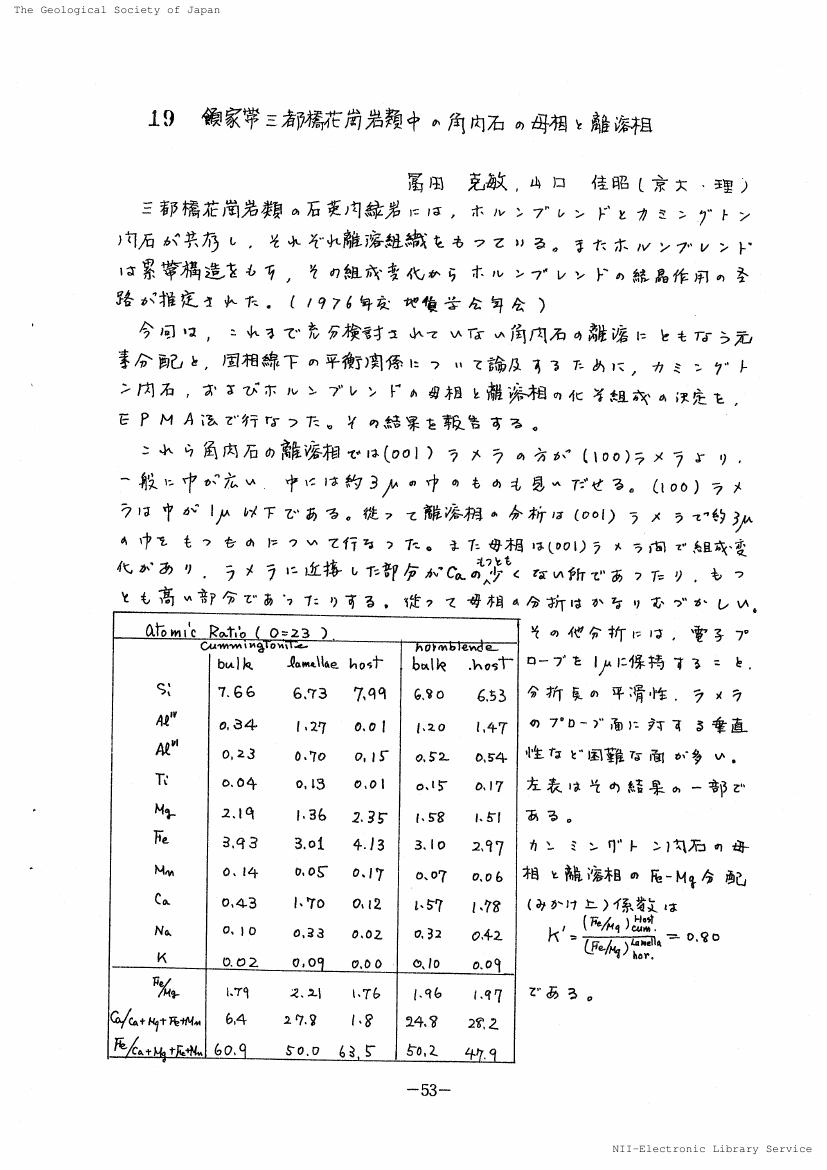 The Geological Society of Japan
19 領家帯三都橋花崗岩類中の角閃石の母相と離溶相
冨田 克敏, 山口 佳昭 (京大・理)
三都橋花崗岩類の石英閃緑岩には, ホルンブレンドとカミングトン
閃石が共存し, それぞれ離溶組織をもつている。またホルンブレンド
は累帯構造をもす, その組成変化からホルンブレンドの結晶作用の径
路が推定された。(1976年度 地質学会年会)
今回は, これまで充分検討されていない角閃石の離溶にともなう元
素分配と, 固相線下の平衡関係について論及するために, カミングト
ン閃石, およびホルンブレンドの母相と離溶相の化学組成の決定を,
EPMA法で行なつた。その結果を報告する。
これら角閃石の離溶相では(001)ラメラの方が(100)ラメラより,
一般に巾が広い, 中には約3μの巾のものも見いだせる。(100)ラメ
ラは巾が1μ以下である。従って離溶相の分析は(001)ラメラで約3μ
の巾をもつものについて行なつた。また母相は(001)ラメラ間で組成変
化があり, ラメラに近接した部分がCaのもつとも少くない所であったり, もつ
とも高い部分であったりする。従って母相の分析はかなりむづかしい。
その他分析には, 電子プ
ローブを1μに保持すること,
分析点の平滑性, ラメラ
のプローブ面に対する垂直
性など困難な面が多い。
左表はその結果の一部で
ある。
カンミングトン閃石の母
相と離溶相のFe-Mg分配
(みかけ上)係数は
K' = (Fe/Mg)Host cum. / (Fe/Mg)Lamella hor. = 0.80
である。
Atomic Ratio (O=23)
Cummingtonite hornblende
bulk lamellae host bulk host
Si 7.66 6.73 7.99 6.80 6.53
Al^IV 0.34 1.27 0.01 1.20 1.47
Al^VI 0.23 0.70 0.15 0.52 0.54
Ti 0.04 0.13 0.01 0.15 0.17
Mg 2.19 1.36 2.35 1.58 1.51
Fe 3.93 3.01 4.13 3.10 2.97
Mn 0.14 0.05 0.17 0.07 0.06
Ca 0.43 1.70 0.12 1.57 1.78
Na 0.10 0.33 0.02 0.32 0.42
K 0.02 0.09 0.00 0.10 0.09
Fe/Mg 1.79 2.21 1.76 1.96 1.97
Ca/Ca+Mg+Fe+Mn 6.4 27.8 1.8 24.8 28.2
Fe/Ca+Mg+Fe+Mn 60.9 50.0 63.5 50.2 47.9
—53—
NII-Electronic Library Service